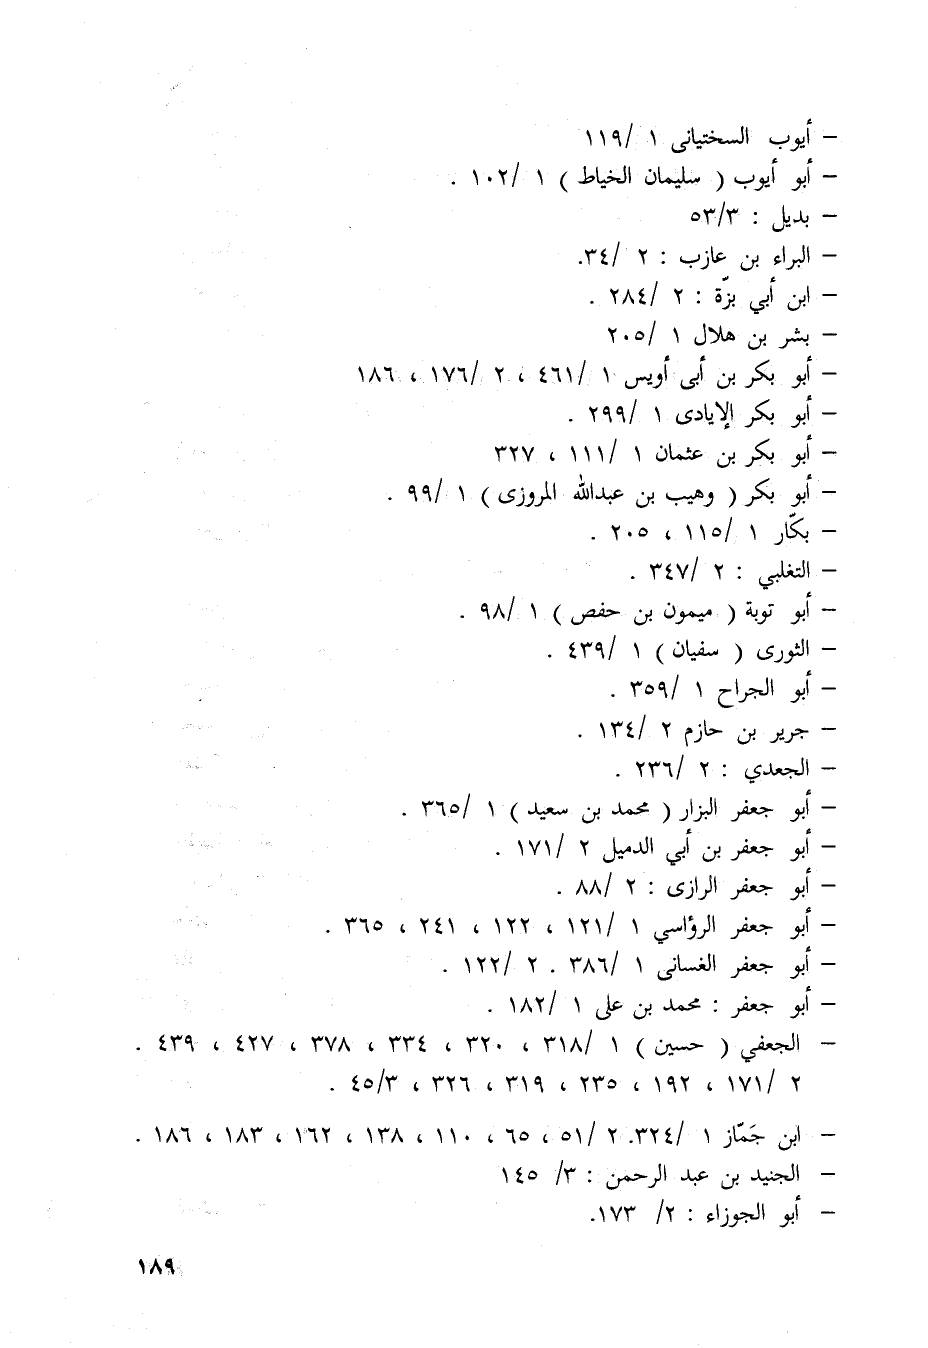 – أيوب السختيانى ١ /١١٩
– أبو أيوب ( سليمان الخياط ) ١ /١٠٢ .
– بديل : ٥٣/٣
– البراء بن عازب : ٢ /٣٤.
– ابن أبي بزّة : ٢ /٢٨٤ .
– بشر بن هلال ١ /٢٠٥
– أبو بكر بن أبى أويس ١ /٤٦١ ، ٢ /١٧٦ ، ١٨٦
– أبو بكر الإيادى ١ /٢٩٩ .
– أبو بكر بن عثمان ١ /١١١ ، ٣٢٧
– أبو بكر ( وهيب بن عبدالله المروزى ) ١ /٩٩ .
– بكّار ١ /١١٥ ، ٢٠٥ .
– التغلبي : ٢ /٣٤٧ .
– أبو توبة ( ميمون بن حفص ) ١ /٩٨ .
– الثورى ( سفيان ) ١ /٤٣٩ .
– أبو الجراح ١ /٣٥٩ .
– جرير بن حازم ٢ /١٣٤ .
– الجعدي : ٢ /٢٣٦ .
– أبو جعفر البزار ( محمد بن سعيد ) ١ /٣٦٥ .
– أبو جعفر بن أبي الدميل ٢ /١٧١ .
– أبو جعفر الرازى : ٢ /٨٨ .
– أبو جعفر الرؤاسي ١ /١٢١ ، ١٢٢ ، ٢٤١ ، ٣٦٥ .
– أبو جعفر الغسانى ١ /٣٨٦ . ٢ /١٢٢ .
– أبو جعفر : محمد بن على ١ /١٨٢ .
– الجعفي ( حسين ) ١ /٣١٨ ، ٣٢٠ ، ٣٣٤ ، ٣٧٨ ، ٤٢٧ ، ٤٣٩ .
٢ /١٧١ ، ١٩٢ ، ٢٣٥ ، ٣١٩ ، ٣٢٦ ، ٤٥/٣ .
– ابن جَمّاز ١ /٣٢٤. ٢ /٥١ ، ٦٥ ، ١١٠ ، ١٣٨ ، ١٦٢ ، ١٨٣ ، ١٨٦ .
– الجنيد بن عبد الرحمن : ٣/ ١٤٥
– أبو الجوزاء : ٢/ ١٧٣.
١٨٩